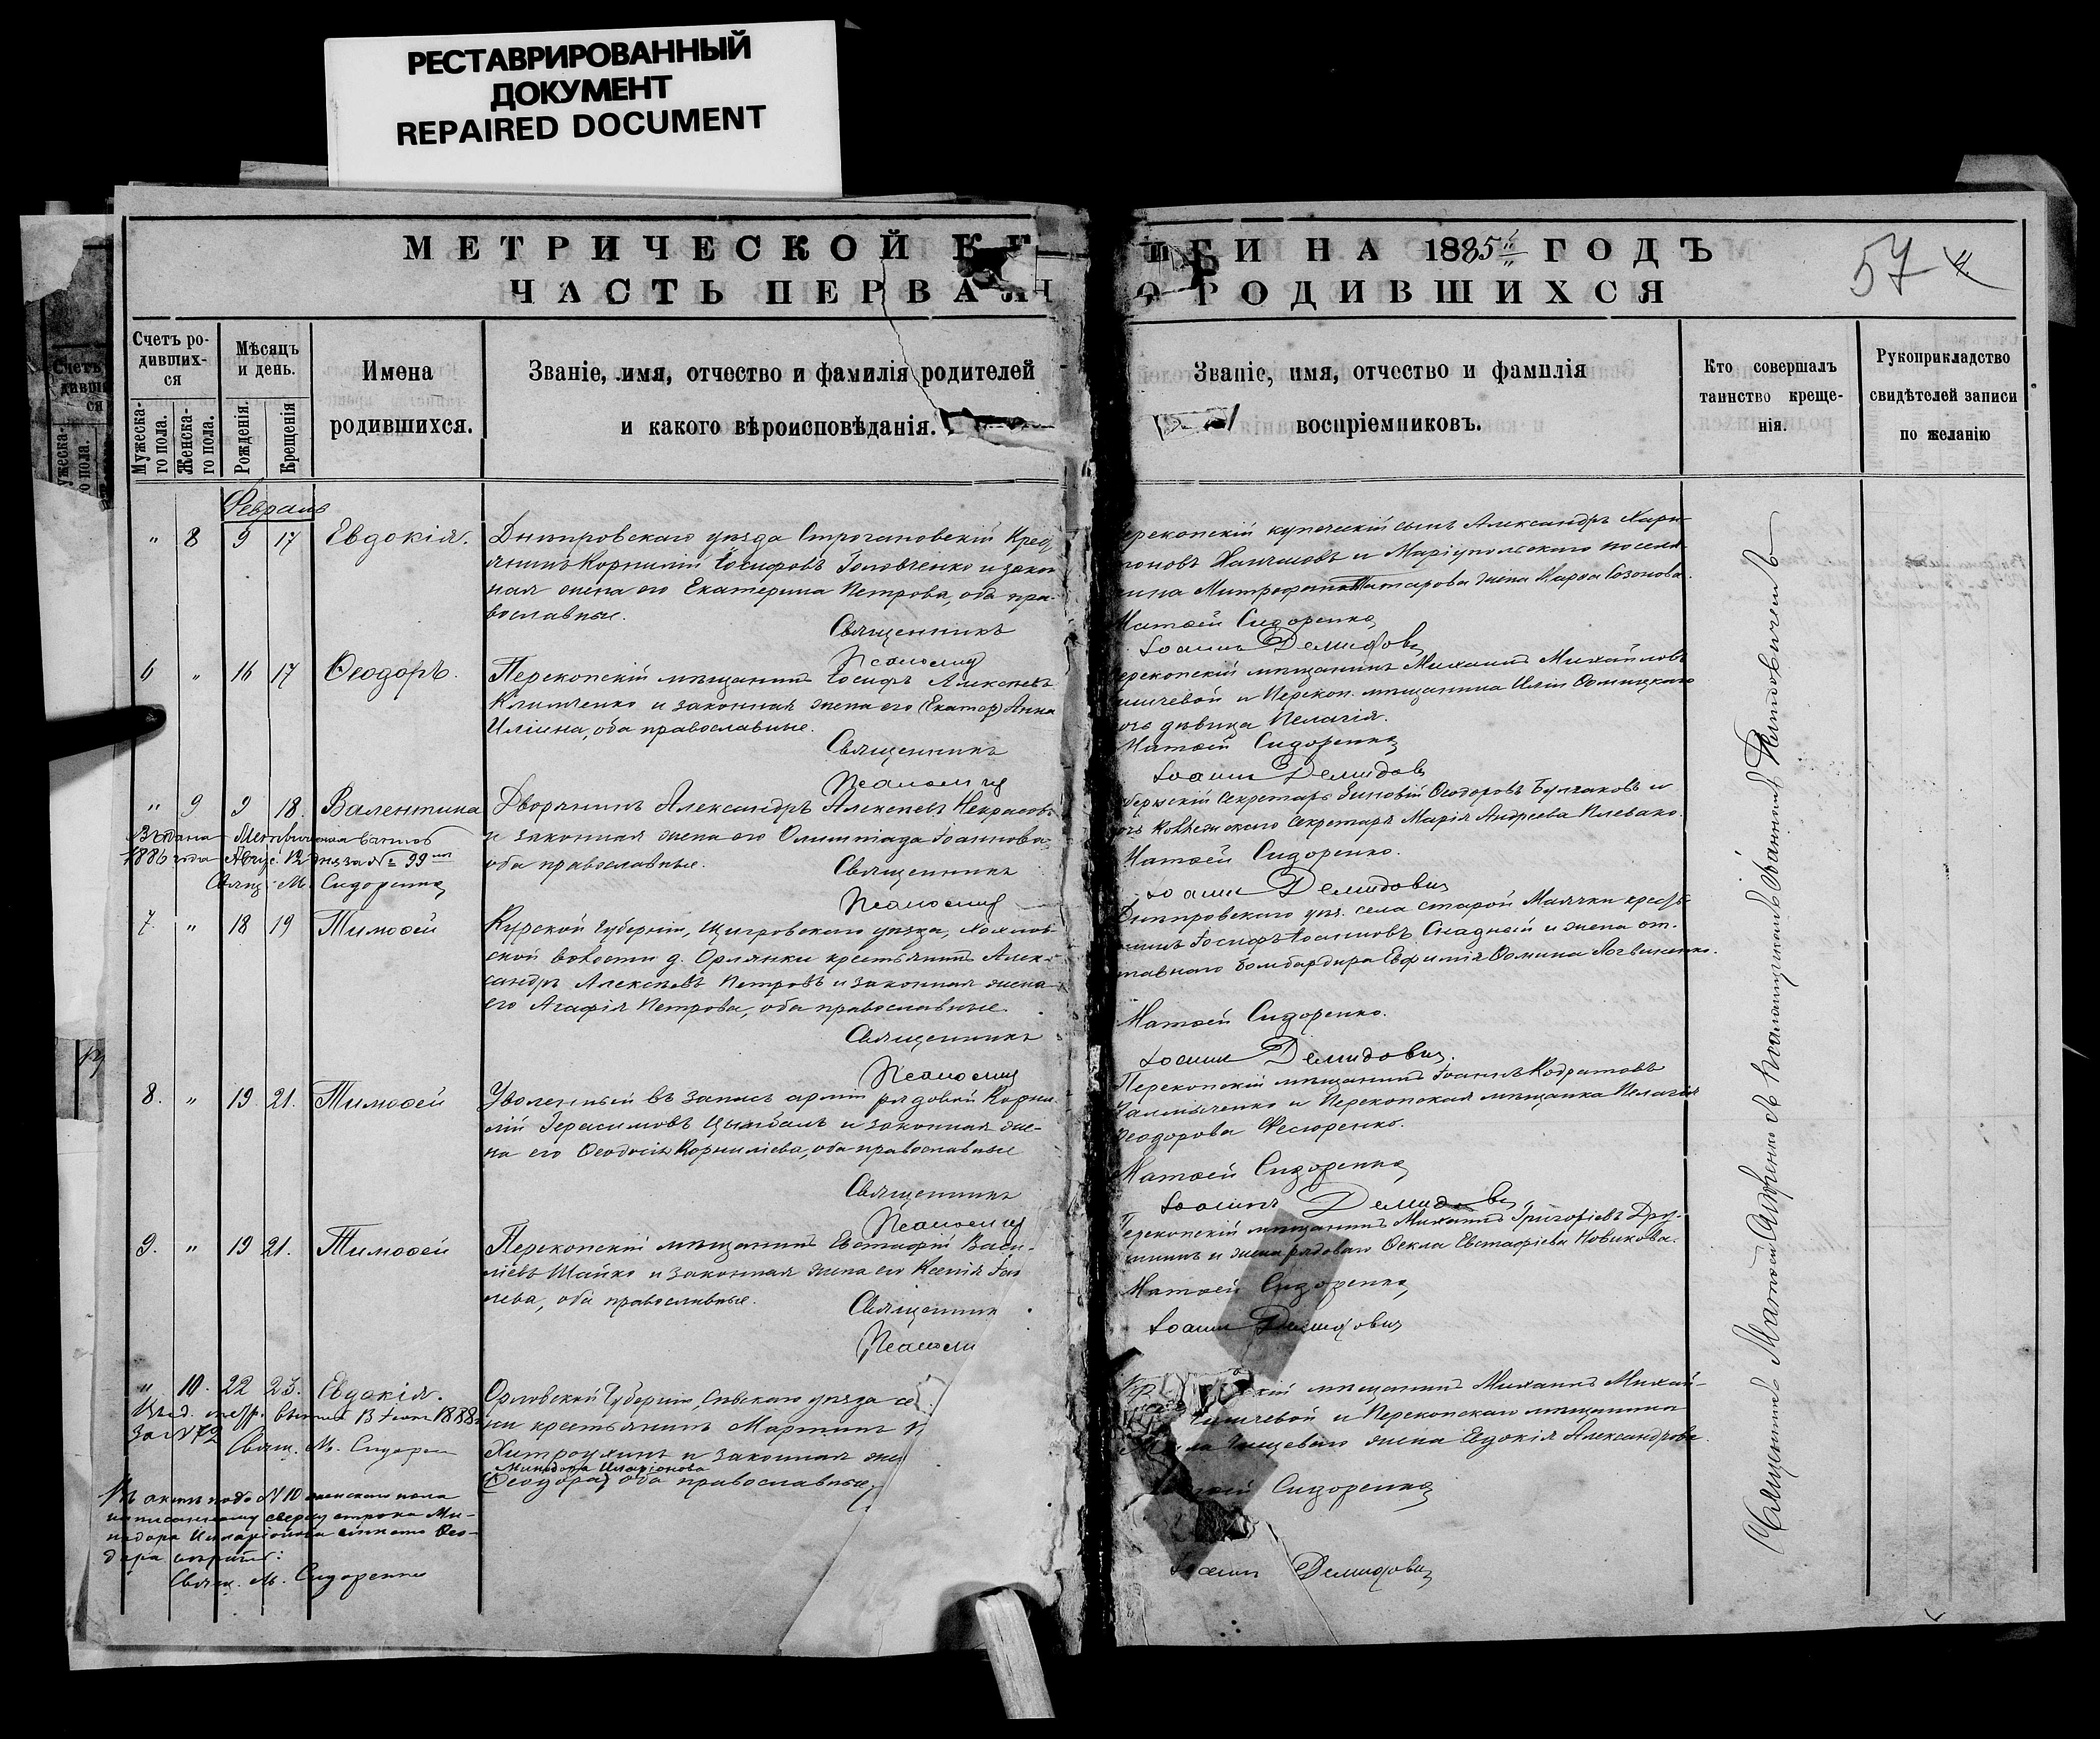 РЕСТАВРИРОВАННЫЙ
ДОКУМЕНТ
REPAIRED DOCUMENT
МЕТРИЧЕСКОЙ КН
ИГИ НА 1885 ГОДЪ
ЧАСТЬ ПЕРВАЯ
О РОДИВШИХСЯ
57
Счетъ ро-
дивших-
ся
Мужеска-
го пола.
Женска-
го пола.
Мѣсяцъ
и день.
Рожденія.
Крещенія
Имена
родившихся.
Званіе, имя, отчество и фамилія родителей
и какого вѣроисповѣданія.
Званіе, имя, отчество и фамилія
воспріемниковъ.
Кто совершалъ
таинство креще-
нія.
Рукоприкладство
свидѣтелей записи
по желанію
Февраль
" 8 9 17 Евдокія.
Днѣпровскаго уѣзда Строгановскій Крес
янинъ Корнилій Іосифовъ Головченко и закон
ная жена его Екатерина Петрова, оба пра-
вославные.
Священникъ
Псаломщ
ерекопскій купеческій сынъ Александръ Хари-
тоновъ и Маріупольскаго поселя-
нина Митрофана Татарова жена Марѳа Созонова.
Матѳей Сидоренко
Іоаннъ Демидовъ
6 " 16 17 Ѳеодоръ.
Перекопскій мѣщанинъ Іосифъ Алексѣевъ
Климченко и законная жена его (Екатер) Анна
Иліина, оба православные.
Священникъ
Псаломщ
ерекопскій мѣщанинъ Михаилъ Михайловъ
и Перекоп. мѣщанина Иліи
очь дѣвица Пелагія.
Матѳей Сидоренко
Іоаннъ Демидовъ
" 9 9 18. Валентина
Дворянинъ Александръ Алексѣевъ Некрасовъ
и законная жена его Олимпіада Іоаннова
оба православные.
Священникъ
Псаломщ
бернскій Секретарь Зиновій Ѳеодоровъ Булгаковъ и
очь Коллежскаго Секретаря Марія Андреева Плевако.
Матѳей Сидоренко.
Іоаннъ Демидовъ
1886 года Авгус. 12 дня за № 99
Свящ. М. Сидоренко
7. " 18 19 Тимоѳей
Курской Губерніи, Щигровскаго уѣзда,
ской волости д. Орлянки крестьянинъ Алек-
сандръ Алексѣевъ Петровъ и законная жена
его Агафія Петрова, оба православные.
Священникъ
Псаломщ
Днѣпровскаго уѣз. села старой Маячки крестья-
нинъ Іосифъ Іоанновъ и жена от-
ставнаго бомбардира Евфимія Ѳомина
Матѳей Сидоренко.
Іоаннъ Демидовъ.
8. " 19. 21. Тимоѳей
Уволенный въ запасъ арміи рядовой Корни
лій Герасимовъ Цымбалъ и законная же-
на его Ѳеодосія Корниліева, оба православные
Священникъ
Псаломщ
Перекопскій мѣщанинъ Іоаннъ Кодратовъ
и Перекопская мѣщанка Пелагія
Ѳеодорова Фесюренко.
Матѳей Сидоренко
Іоаннъ Демидовъ
9. " 19 21. Тимоѳей
Перекопскій мѣщанинъ Евстафій Васи-
ліевъ Шайко и законная жена его Ксенія
лева, оба православные.
Священник
Псаломщ
Перекопскій мѣщанинъ Михаилъ Григоріевъ
и жена рядоваго Ѳекла Евстафіева Новикова.
Матѳей Сидоренко,
Іоаннъ Демидовъ
" 10. 22 23. Евдокія.
Орловской Губерніи, Сѣвскаго уѣзда се
ки крестьянинъ Мартинъ
и законная же
Минодора Иларіонова
(Ѳеодора) оба православные,
кій мѣщанинъ Михаилъ Михай-
и Перекопскаго мѣщанина
жена Евдокія Александрова.
Сидоренко
Іоаннъ Демидовъ
Выд. метр. выпись 13 1888
за № 72 Свящ. М. Сидорен
Въ актѣ подъ № 10 женскаго пола
написанному сверху строка Ми-
нодора Иларіонова Ѳео-
дора вѣрить:
Свящ. М. Сидоренко
Священникъ Матѳей Сидоренко съ псаломщикомъ Іоанномъ Демидовичемъ